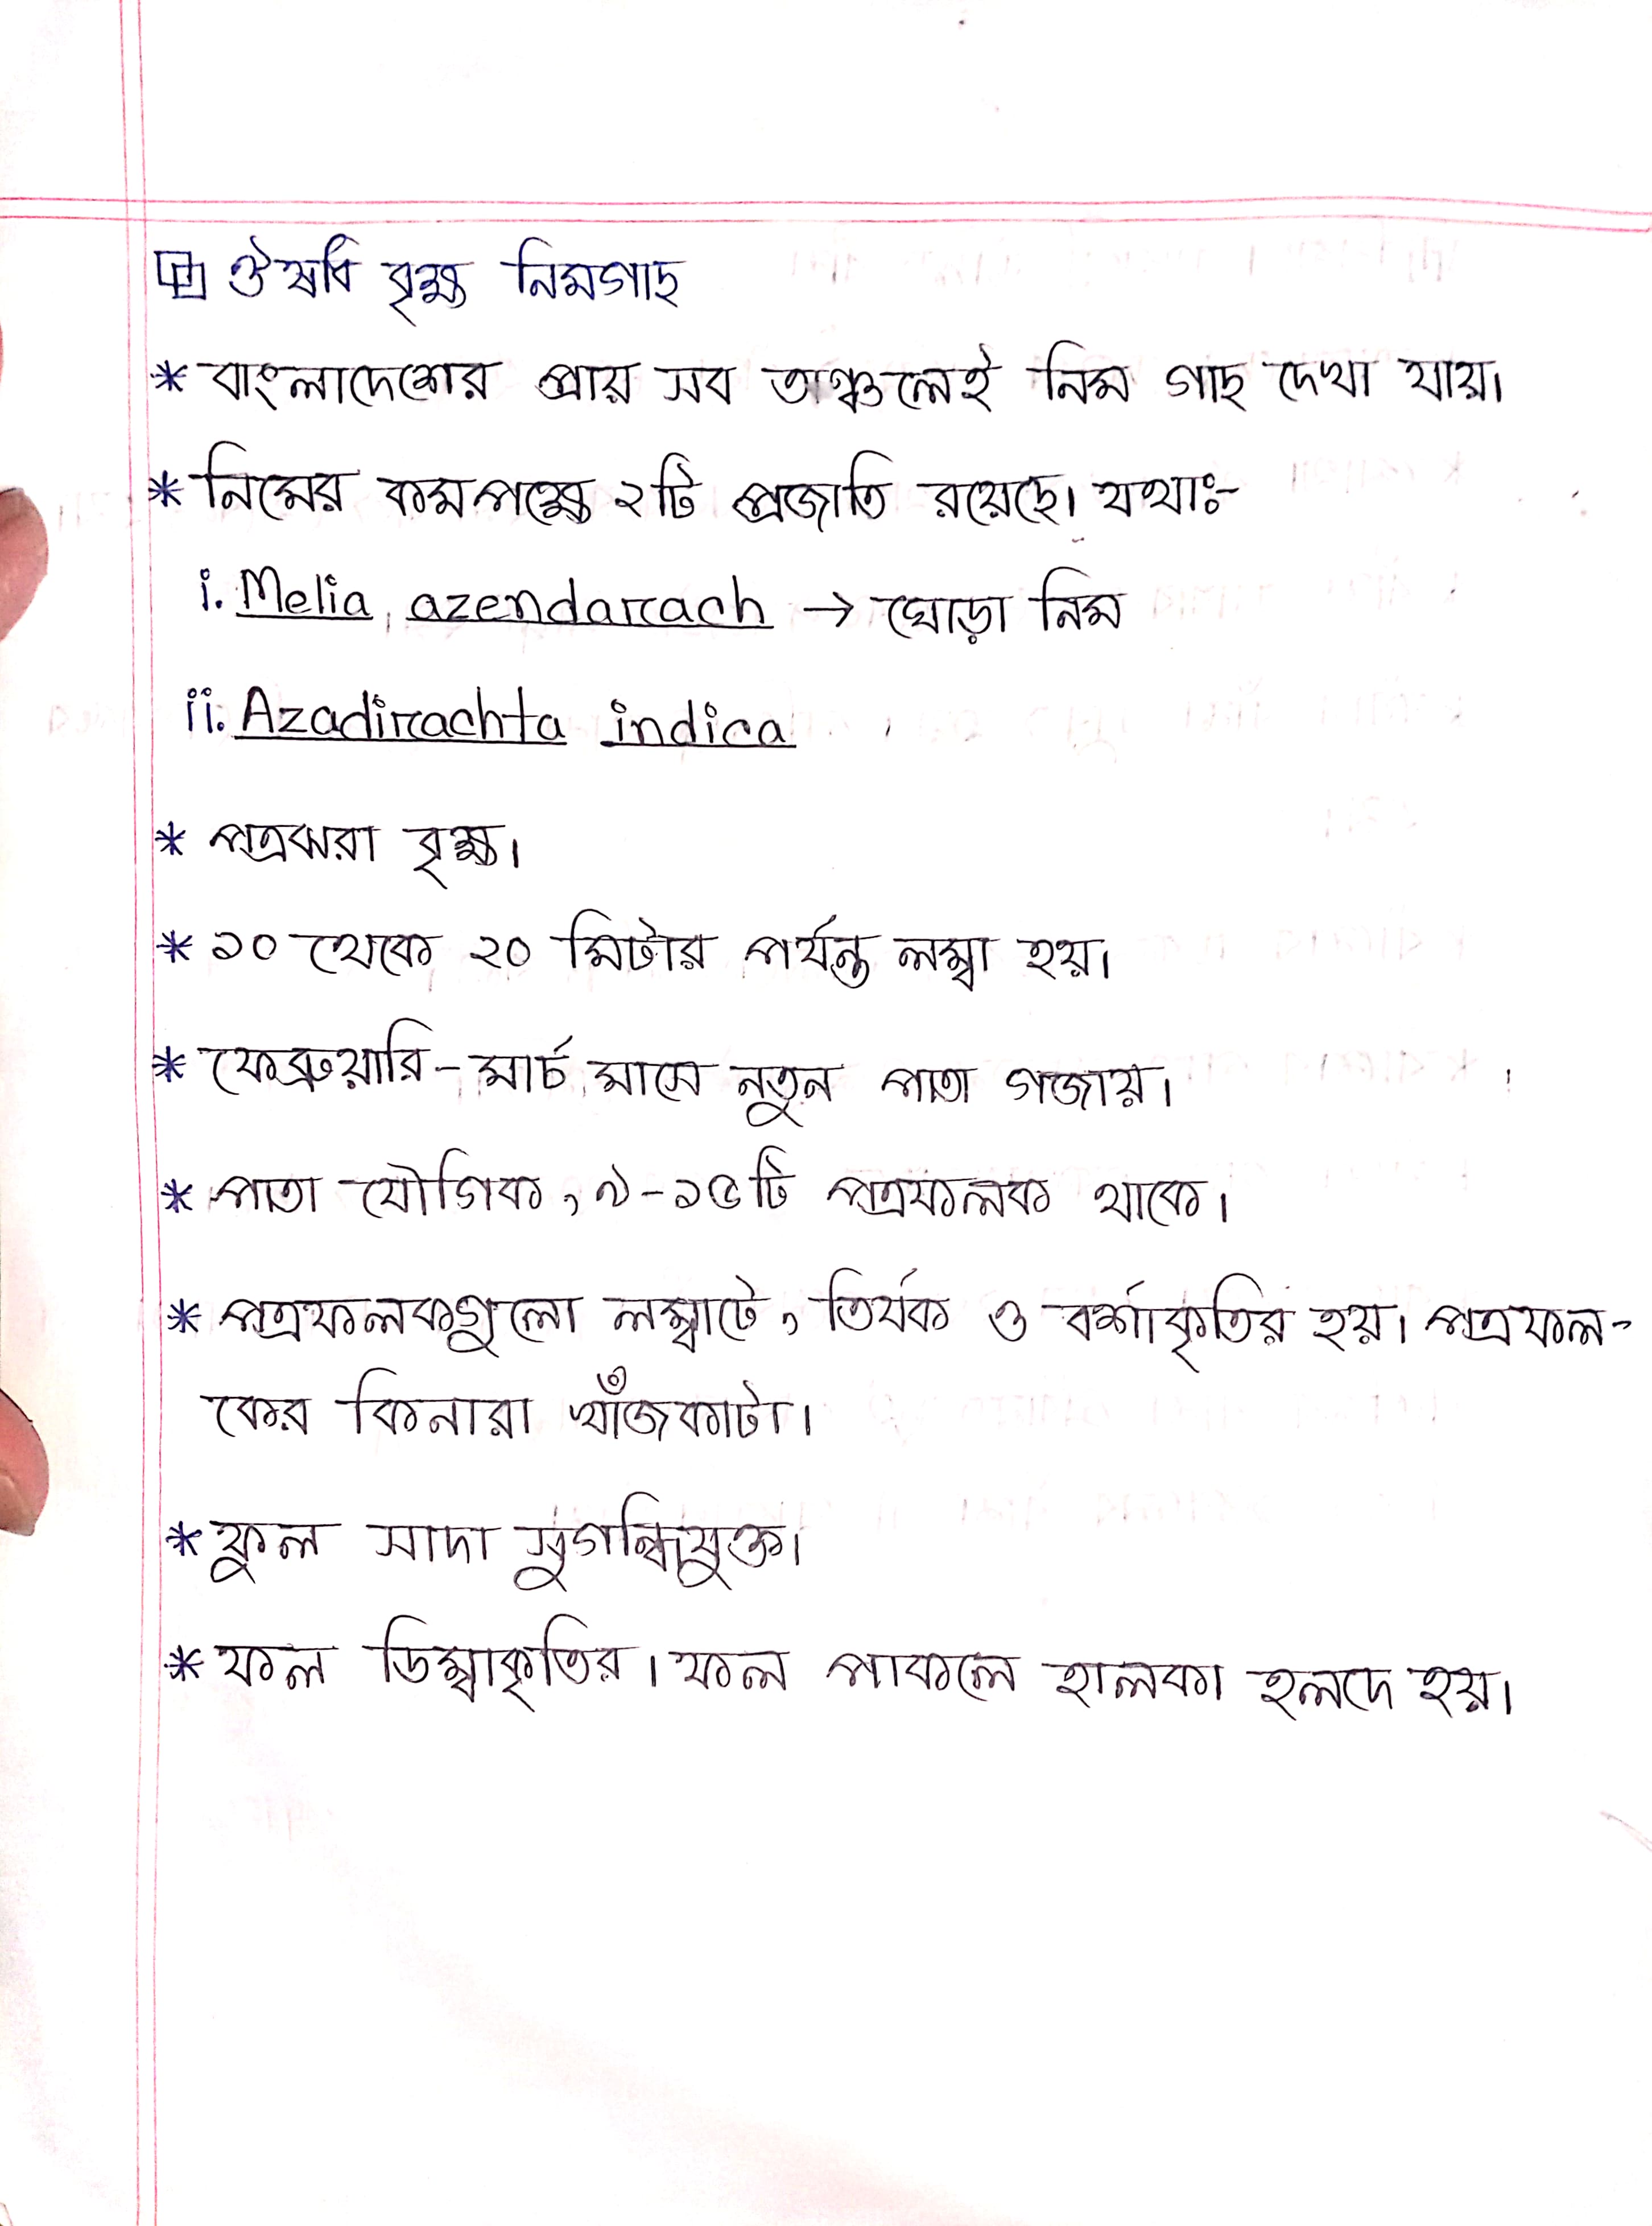 ঔষধি বৃক্ষ নিমগাছ
* বাংলাদেশের প্রায় সব অঞ্চলেই নিম গাছ দেখা যায়।
* নিমের কমপক্ষে ২টি প্রজাতি রয়েছে। যথাঃ-
i. Melia azendarach → ঘোড়া নিম
ii. Azadirachta indica
* পত্রঝরা বৃক্ষ।
* ১০ থেকে ২০ মিটার পর্যন্ত লম্বা হয়।
* ফেব্রুয়ারি - মার্চ মাসে নতুন পাতা গজায়।
* পাতা যৌগিক, ৯-১৫টি পত্রফলক থাকে।
* পত্রফলকগুলো লম্বাটে, তির্যক ও বর্শাকৃতির হয়। পত্রফল-
কের কিনারা খাঁজকাটা।
* ফুল সাদা সুগন্ধিযুক্ত।
* ফল ডিম্বাকৃতির। ফল পাকলে হালকা হলদে হয়।